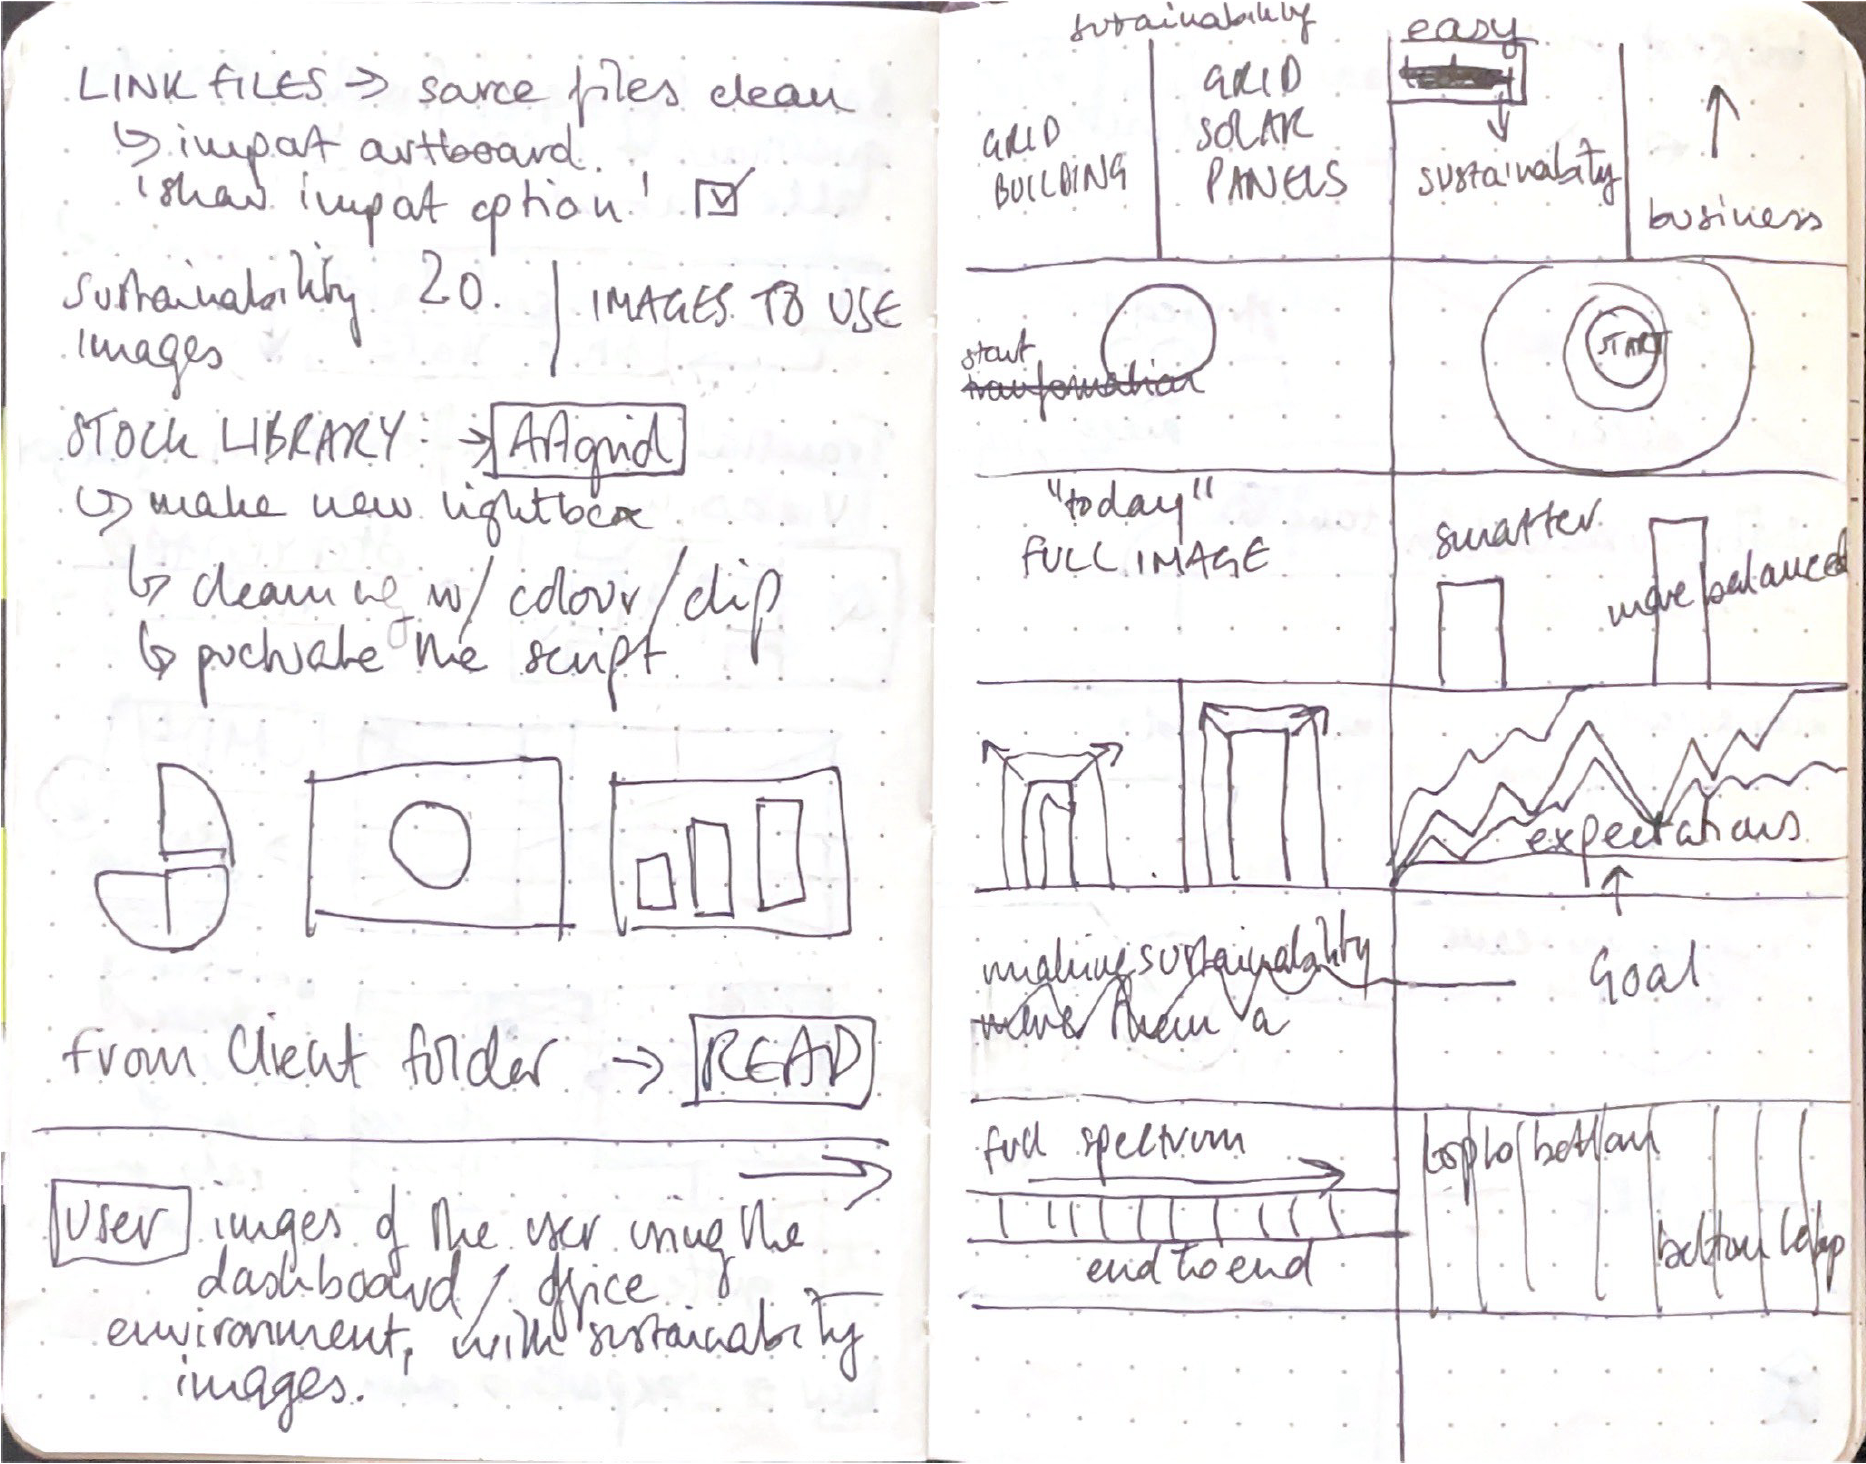 LINK FILES → source files clean
↳ import artboard
'show import option' ☑
sustainability 20. | IMAGES TO USE
images
STOCK LIBRARY → Artgrid
↳ make new lightbox
↳ cleaning w/ colour/clip
↳ the script
from Client folder → READ
User images of the user using the
dashboard / office
environment, with sustainability
images.
sustainability
GRID
BUILDING
GRID
SOLAR
PANELS
easy
↓
sustainability
↑
business
start
transformation
START
"today"
FULL IMAGE
smarter
more balanced
expectations
↑
making sustainability
more than a
Goal
full spectrum
end to end
top to bottom
bottom to top